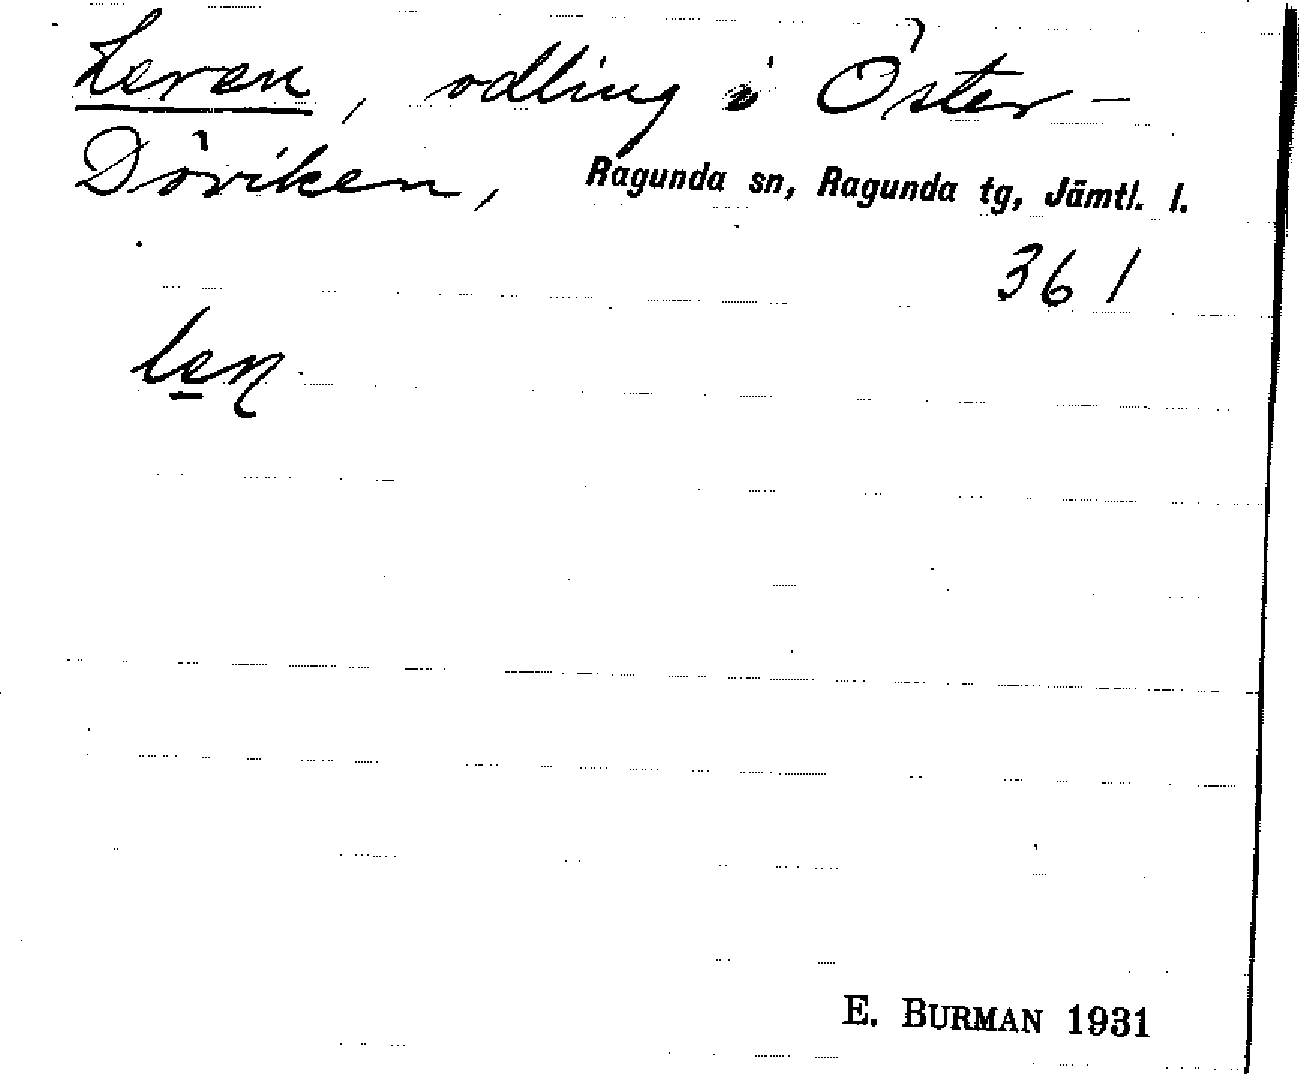 Leren, odling i Öster-
Döviken, Ragunda sn, Ragunda tg, Jämtl. l.
361
E. BURMAN 1931